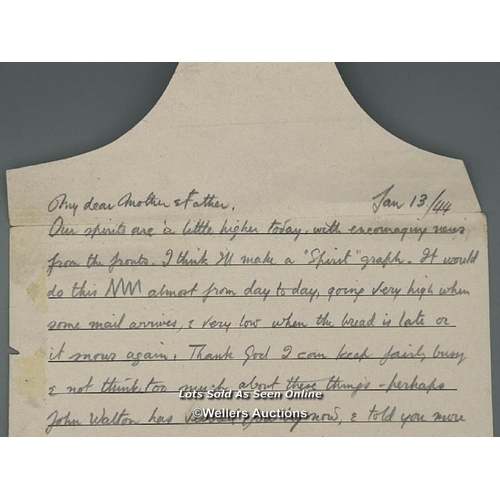 My dear Mother & Father. Jan 13/44
Our spirits are a little higher today, with encouraging news
from the fronts. I think I'll make a "Spirit" graph. It would
do this almost from day to day, going very high when
some mail arrives, & very low when the bread is late or
it snows again. Thank God I can keep fairly busy
& not think too much about these things – perhaps
John Walton has you by now, & told you more
Lots Sold As Seen Online
©Wellers Auctions